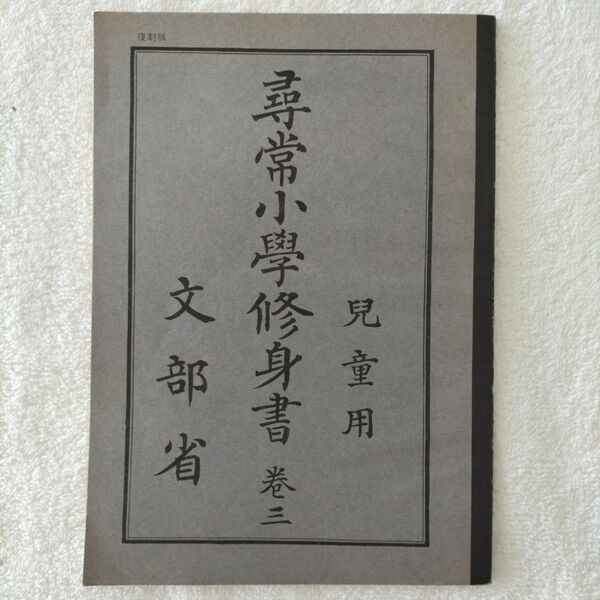 復刻版
兒童用
尋常小學修身書 卷三
文部省